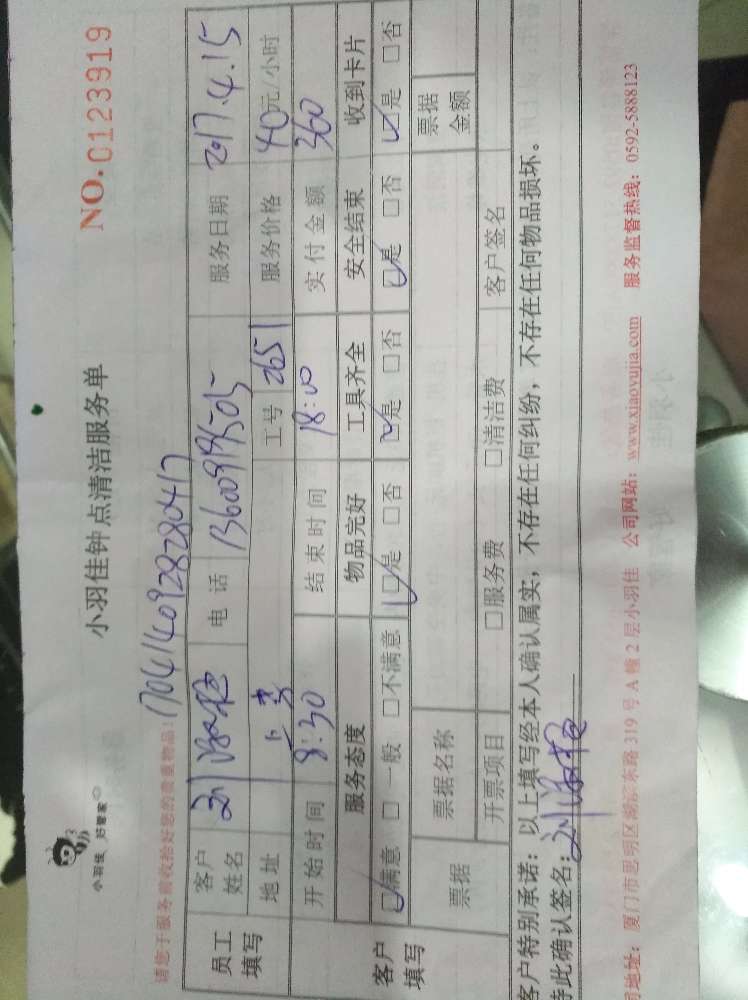 小羽佳 好管家
小羽佳钟点清洁服务单
NO.0123919
请您于服务前收拾好您的贵重物品!
1704140928280417
员工填写 客户姓名 刘 电话 服务日期 2017.4.15
地址 工号 2651 服务价格 40元/小时
开始时间 8:30 结束时间 18:00 实付金额 360
客户填写 服务态度 物品完好 工具齐全 安全结束 收到卡片
☑满意 □一般 □不满意 ☑是 □否 ☑是 □否 ☑是 □否 ☑是 □否
票据 票据名称 票据金额
开票项目 □服务费 □清洁费 客户签名
客户特别承诺:以上填写经本人确认属实,不存在任何纠纷,不存在任何物品损坏。
特此确认签名:刘
司地址:厦门市思明区湖滨东路319号A幢2层小羽佳 公司网站:www.xiaoyujia.com 服务监督热线:0592-5888123